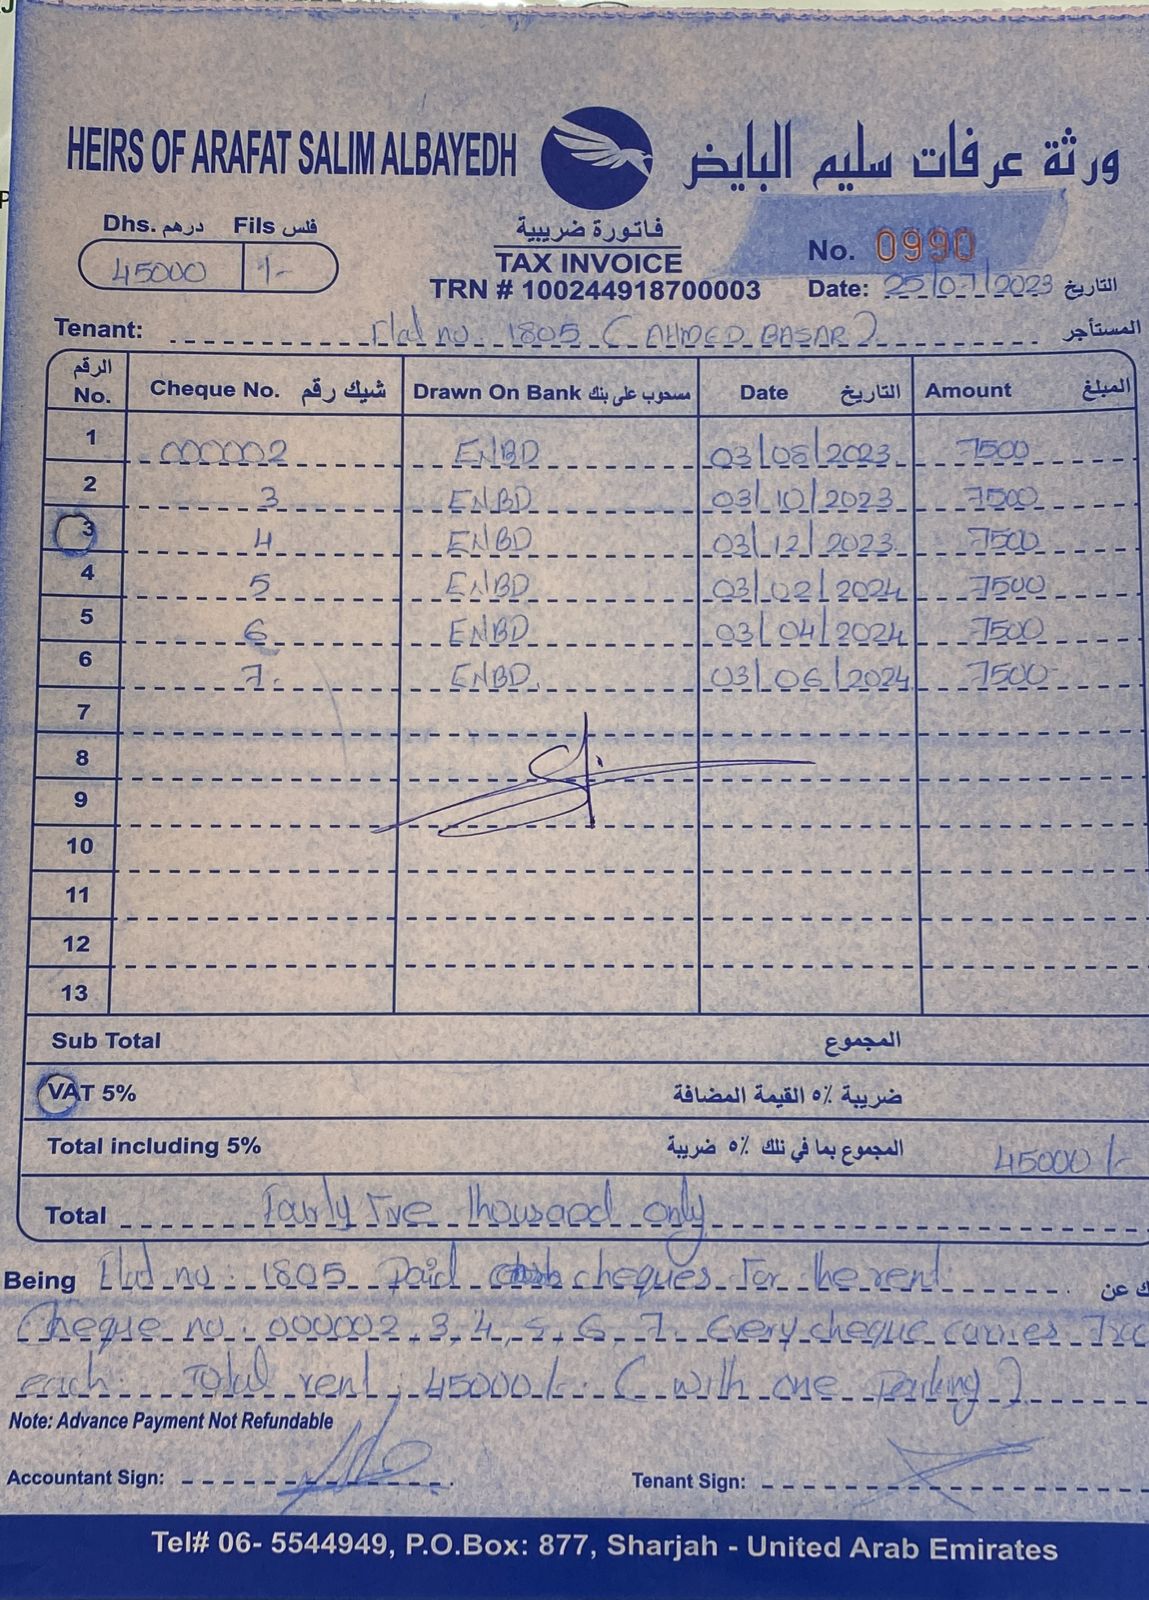 HEIRS OF ARAFAT SALIM ALBAYEDH ورثة عرفات سليم البايض
Dhs. درهم Fils فلس
45000 /-
فاتورة ضريبية
TAX INVOICE
TRN # 100244918700003
No. 0990
Date: 25/07/2023 التاريخ
Tenant: Flat no. 1805 (AHMED BASAR) المستأجر
الرقم No. Cheque No. شيك رقم Drawn On Bank مسحوب على بنك Date التاريخ Amount المبلغ
1 000002 ENBD 03/08/2023 7500
2 3 ENBD 03/10/2023 7500
3 4 ENBD 03/12/2023 7500
4 5 ENBD 03/02/2024 7500
5 6 ENBD 03/04/2024 7500
6 7. ENBD. 03/06/2024 7500
7
8
9
10
11
12
13
Sub Total المجموع
VAT 5% ضريبة ٥٪ القيمة المضافة
Total including 5% المجموع بما في ذلك ٥٪ ضريبة 45000/-
Total Fourty Five thousand only
Being Flat no: 1805 Paid cheques For the rent. ك عن
Cheque no: 000002, 3, 4, 5, 6, 7. Every cheque carries
each. Total rent: 45000/-. (with one parking)
Note: Advance Payment Not Refundable
Accountant Sign: Tenant Sign:
Tel# 06- 5544949, P.O.Box: 877, Sharjah - United Arab Emirates